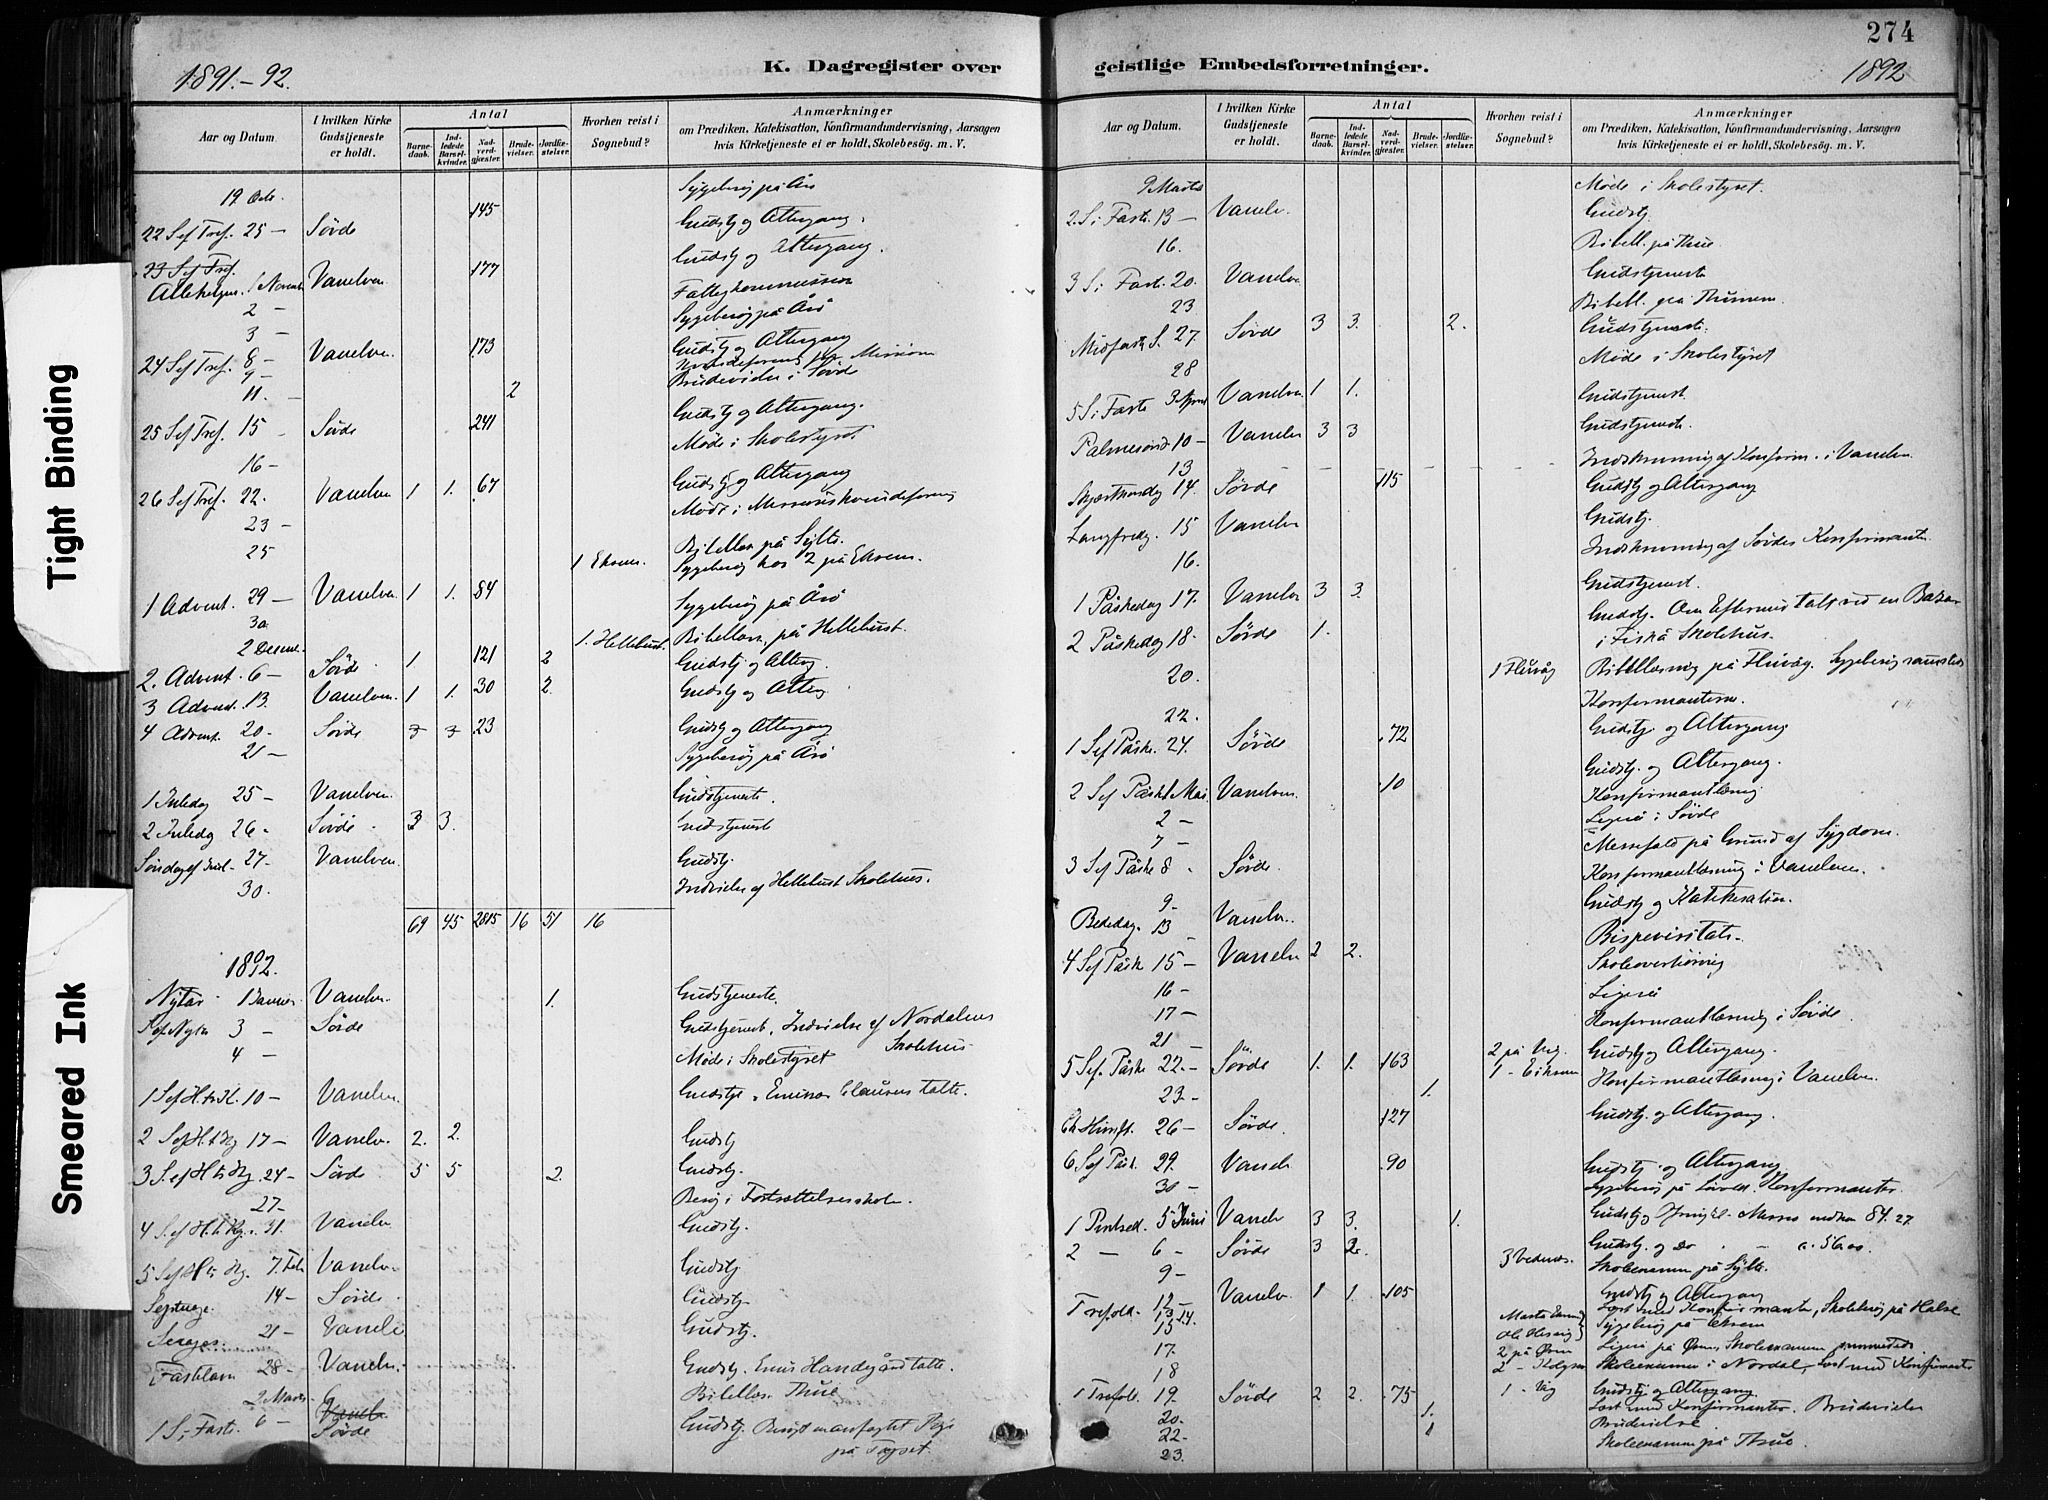 274
1891.-92.
K. Dagregister over
geistlige Embedsforretninger.
1892
Aar og Datum
I hvilken Kirke Gudstjeneste er holdt.
Antal
Barnedaab.
Indledede Barselkvinder.
Nadverdgjester.
Brudevielser.
Jordfæstelser.
Hvorhen reist i Sognebud?
Anmærkninger
om Prædiken, Katekisation, Konfirmandundervisning, Aarsagen
hvis Kirketjeneste ei er holdt, Skolebesøg. m. V.
19 Octo. Sygebesøg på Årö
22 S ef Tref. 25 — Sörde 145 Gudstj og Altergang.
23 S ef Tref.
Allehelgen 1 Novemb Vanelven 177 Gudstj og Altergang.
2 — Fattigkommission
3 — Sygebesøg på Årö
24 S ef Tref. 8 — Vanelven. 173 Gudstj og Altergang
9 —
11. — 2 Brudevielse i Sörde
25 S ef Tref. 15 — Sörde 241 Gudstj og Altergang.
16 — Möde i Skolestyret
26 S ef Tref. 22. Vanelven 1 1. 67 Gudstj og Altergang
23 — Möde i Missionskvindeforening
25 Bibellæs på Sylte.
1 Eksem. Sygebesøg hos 2 på Eksem.
1 Advent. 29 — Vanelven. 1 1. 84
30 Sygebesøg på Årö
2 Decem. 1. Hellebust. Bibellæs. på Hellebust.
2. Advent. 6 — Sörde 1 121 2 Gudstj og Alterg.
3 Advend. 13. Vanelven. 1 1. 30 2. Gudstj og Alterg
4 Advent. 20. — Sörde 7 7 23 Gudstj og Altergang
21 — Sygebesøg på Årö
1 Juledag 25 — Vanelven. Gudstjeneste.
2 Juledag 26 — Sörde 3 3. Gudstjenest
Söndag ef Jul. 27. Vanelven. Gudstj.
30. Indvielse af Hellebust Skolehus.
69 45 2815 16 51 16
1892.
Nytår 1 Januar Vanelv. 1. Gudstjeneste.
S ef Nytår 3 — Sörde Gudstjenest. Indvielse af Nordalens Skolehus
4 — Möde i Skolestyret
1 S ef H. tr K. 10 — Vanelven. Gudstje. Emisær Clausens talte.
2 S ef H. t Kg 17 — Vanelv. 2. 2. Gudstj
3 S. ef H tr Kg. 24 — Sörde 5 5 2. Gudstj.
27. — Besøg i Fortsættelsesskolen.
4 S. ef H. tr Kg. 31. Vanelv Gudstj.
5 S ef H tr Kg. 7. Feb Vanelv. Gudstj
Septuage. 14 — Sörde. Gudstj.
Sexages. 21 — Vanelv Gudstj.
Fastelavn 28 — Vanelv. Gudstj. Emis Handegård talte.
2 Marts Bibellæs. Thue
1 S. i Fast. 6 — Vanelv Sörde Gudstj.
på Toget.
Aar og Datum.
I hvilken Kirke Gudstjeneste er holdt.
Antal
Barnedaab.
Indledede Barselkvinder.
Nadverdgjester.
Brudevielser.
Jordfæstelser.
Hvorhen reist i Sognebud?
Anmærkninger
om Prædiken, Katekisation, Konfirmandundervisning, Aarsagen
hvis Kirketjeneste ei er holdt, Skolebesøg. m. V.
9 Marts Möde i Skolestyret.
2 S. i Fast. 13 — Vanelv. Gudstj.
16. Bibell. på Thue
3 S. i Fast. 20. Vanelv Gudstjeneste
23 Bibell. på Thunem.
Midfaste S. 27. Sörde 3 3. 2. Gudstjeneste.
28 Möde i Skolestyret
5 S. i Faste 3 April Vanelven 1 1. Gudstjenest.
Palmesönd 10 — Vanelv 3 3 Gudstjenest.
13 Indskrivning af Konfirm. i Vanelv.
Skjærtorsdag 14. Sörde 115 Gudstj og Altergang
Langfredg. 15 Vanelv Gudstj.
16. Indskrivning af Sördes Konfirmanter
1 Påskedag 17. Vanelv 3 3. Gudstjenest.
2 Påskedag 18. Sörde 1. Gudstj. Om Efterm. talt ved en Bazar
i Fiskå Skolehus.
20. 1 Fluvåg Bibellæsning på Fluvåg. Sygebesøg sammesteds
22. Konfirmanterne.
1 S ef Påske. 24. Sörde 72 Gudstj og Altergang
2 S ef Påske 1 Mai. Vanelven. 10 Gudstj. og Altergang.
2 — Konfirmantlæsning
7 — Ligeså i Sörde
3 S ef Påske 8 Sörde. Messefald på Grund af Sygdom.
9 — Konfirmantlæsning i Vanelven.
Bededag. 13 Vanelv. Gudstj og Katekesation.
Bispevisitats.
4 S ef Påsk 15 — Vanelv 2 2.
16 — Skoleoverhöring
17 — Ligeså
21 — Konfirmantlæsning i Sörde.
5 S ef. Påske 22. — Sörde 1. 1. 163 2 på Vig. Gudstj og Altergang.
23 — 1. 1 - Eiksem Konfirmantlæsning i Vanelv.
Ch Himft. 26 — Sörde. 127 Gudstj. og Altergang.
6 S ef Påsk. 29. Vanelv 90 Gudstj. og Altergang
30 —
1 Pintsed. 5 Juni Vanelv 3 3. 1.
2 — 6 — Sörde 3 2. Gudstj. og Do 56.00
9 — 3 Vednes. Skoleexamen på Sylte.
Trefold. 12 Vanelv 1 1. 105 Gudstj og Altergang
13 14. Læst med Konfirmanter, Skolebesøg på Halse
15 Sygebesøg på Eksem
17. 2 på Ørsn
18 2 - Skoleexamen i Nordal, Læst med Konfirmanter
1 Trefold. 19. Sörde 2 2. 75 1 - Vig Gudstj og Altergang.
20 — 1. Læst med Konfirmanter. Brudevielse
22 — 1 Brudevielse
23. Skoleexamen på Thue.
Tight Binding
Smeared Ink